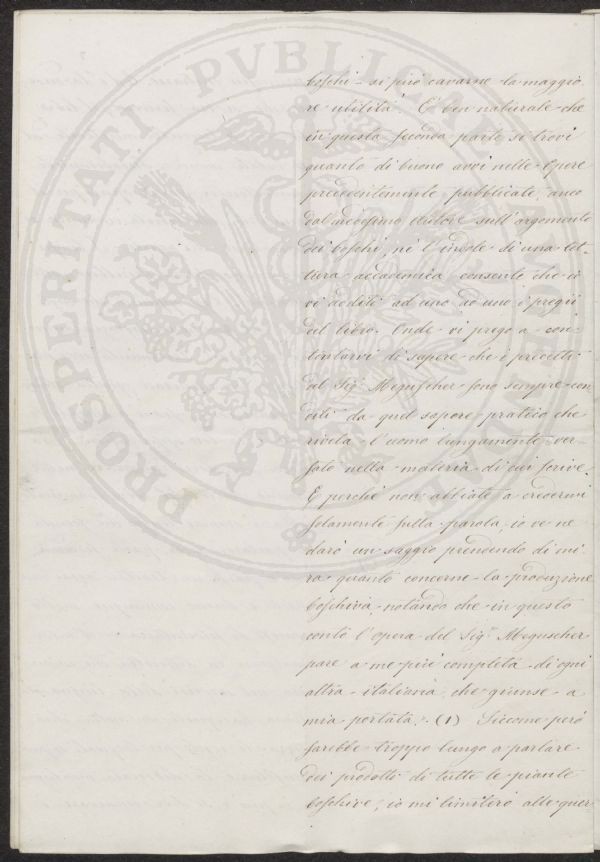 boschi – si può cavarne la maggio
re utilità. È ben naturale che
in questa seconda parte si trovi
quanto di buono avvi nelle Opere
precedentemente pubblicate, anco
dal medesimo autore sull'argomento
dei boschi, nè l'indole di una let-
tura accademica consente che io
vi additi ad uno ad uno i pregii
del libro. Onde vi prego a con-
tentarvi di sapere che i precetti
del Sig.r Meguscher sono sempre con
diti da quel sapore pratico che
rivela l'uomo lungamente ver-
sato nella materia di cui scrive.
E perchè non abbiate a credermi
solamente sulla parola, io ve ne
darò un saggio prendendo di mi
ra quanto concerne la produzione
boschiva, notando che in questo
conto l'opera del Sig.r Meguscher
pare a me più completa di ogni
altra italiana che giunse a
mia portata. (1) Siccome però
sarebbe troppo lungo a parlare
dei prodotti di tutte le piante
boschive, io mi limiterò alle quer
PROSPERITATI PVBLICAE